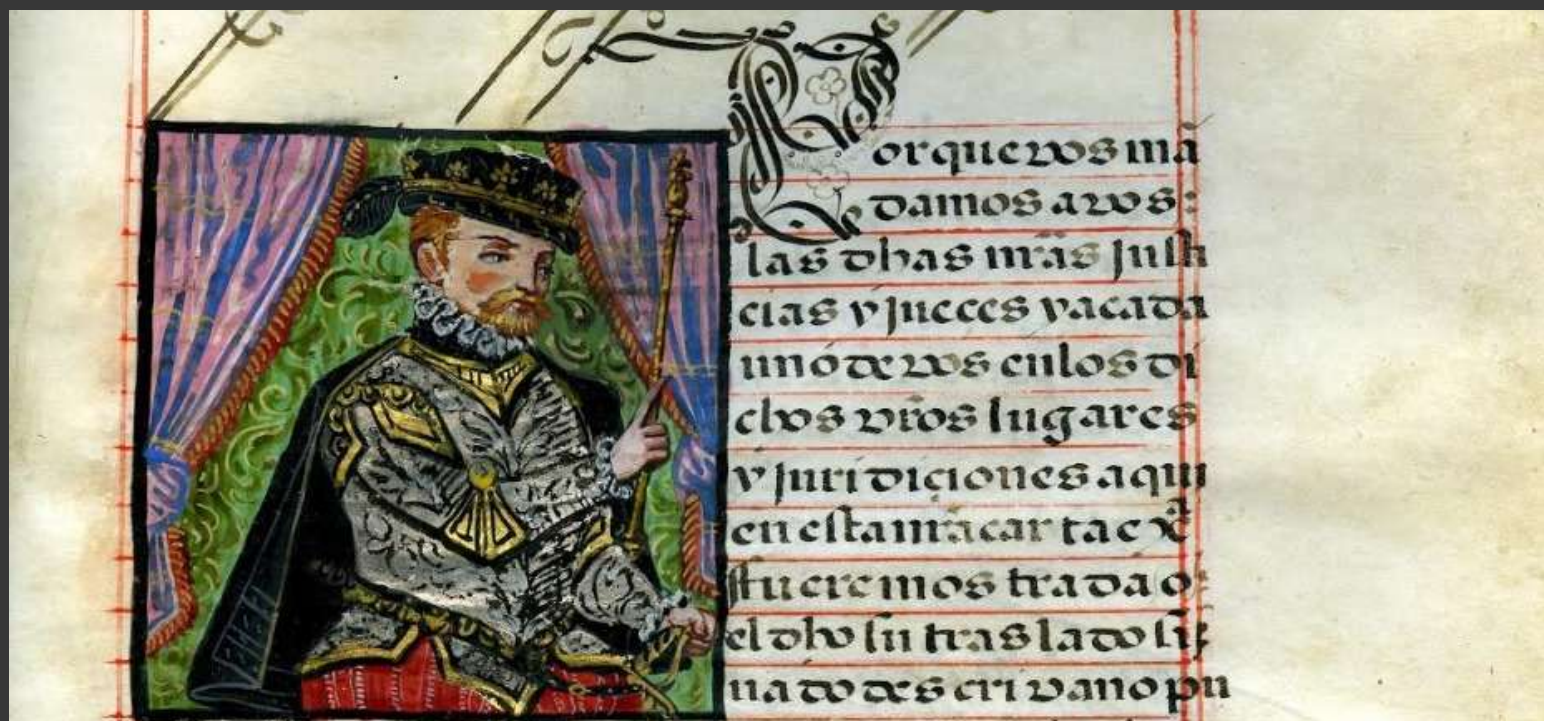 Porque vos mā
damos a vos:
las dhas nr̃as justi
cias y jueces y a cada
uno de vos en los di
chos vr̃os lugares
y juridiciones a qui
en esta nr̃a carta e x̃e
fuere mostrada o
el dho su traslado sig
nado de escrivano pu